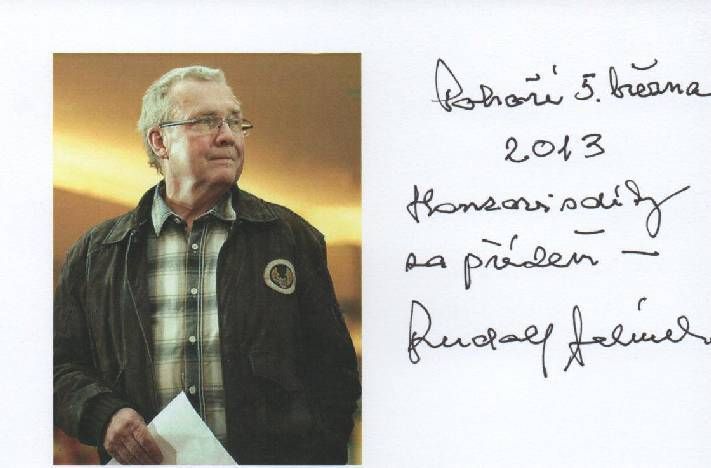 Pohoří 5. března
2013
Honzovi s díky
za přízeň —
Rudolf Jelínek